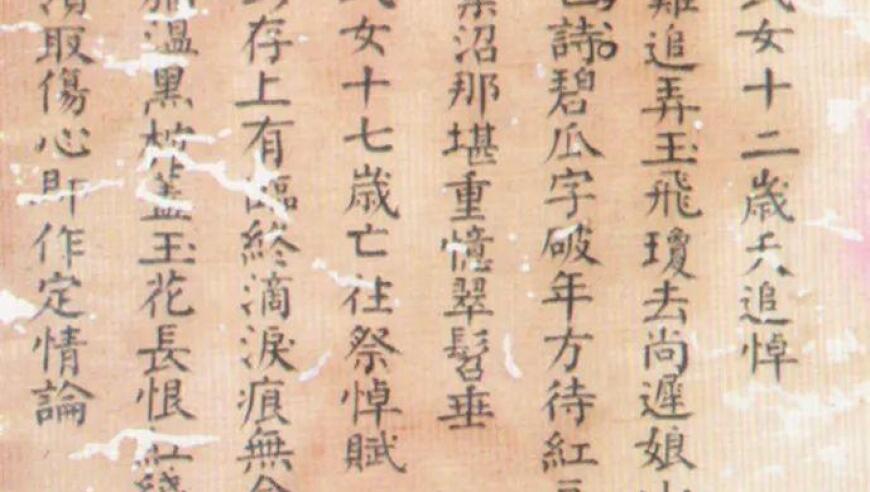 女十二歲亡追悼
難追弄玉飛瓊去尚遲娘
詩碧瓜字破年方待紅
沼那堪重憶翠髫垂
女十七歲亡往祭悼賦
存上有臨終滴淚痕無
溫黑蓋玉花長恨紅
取傷心即作定情論